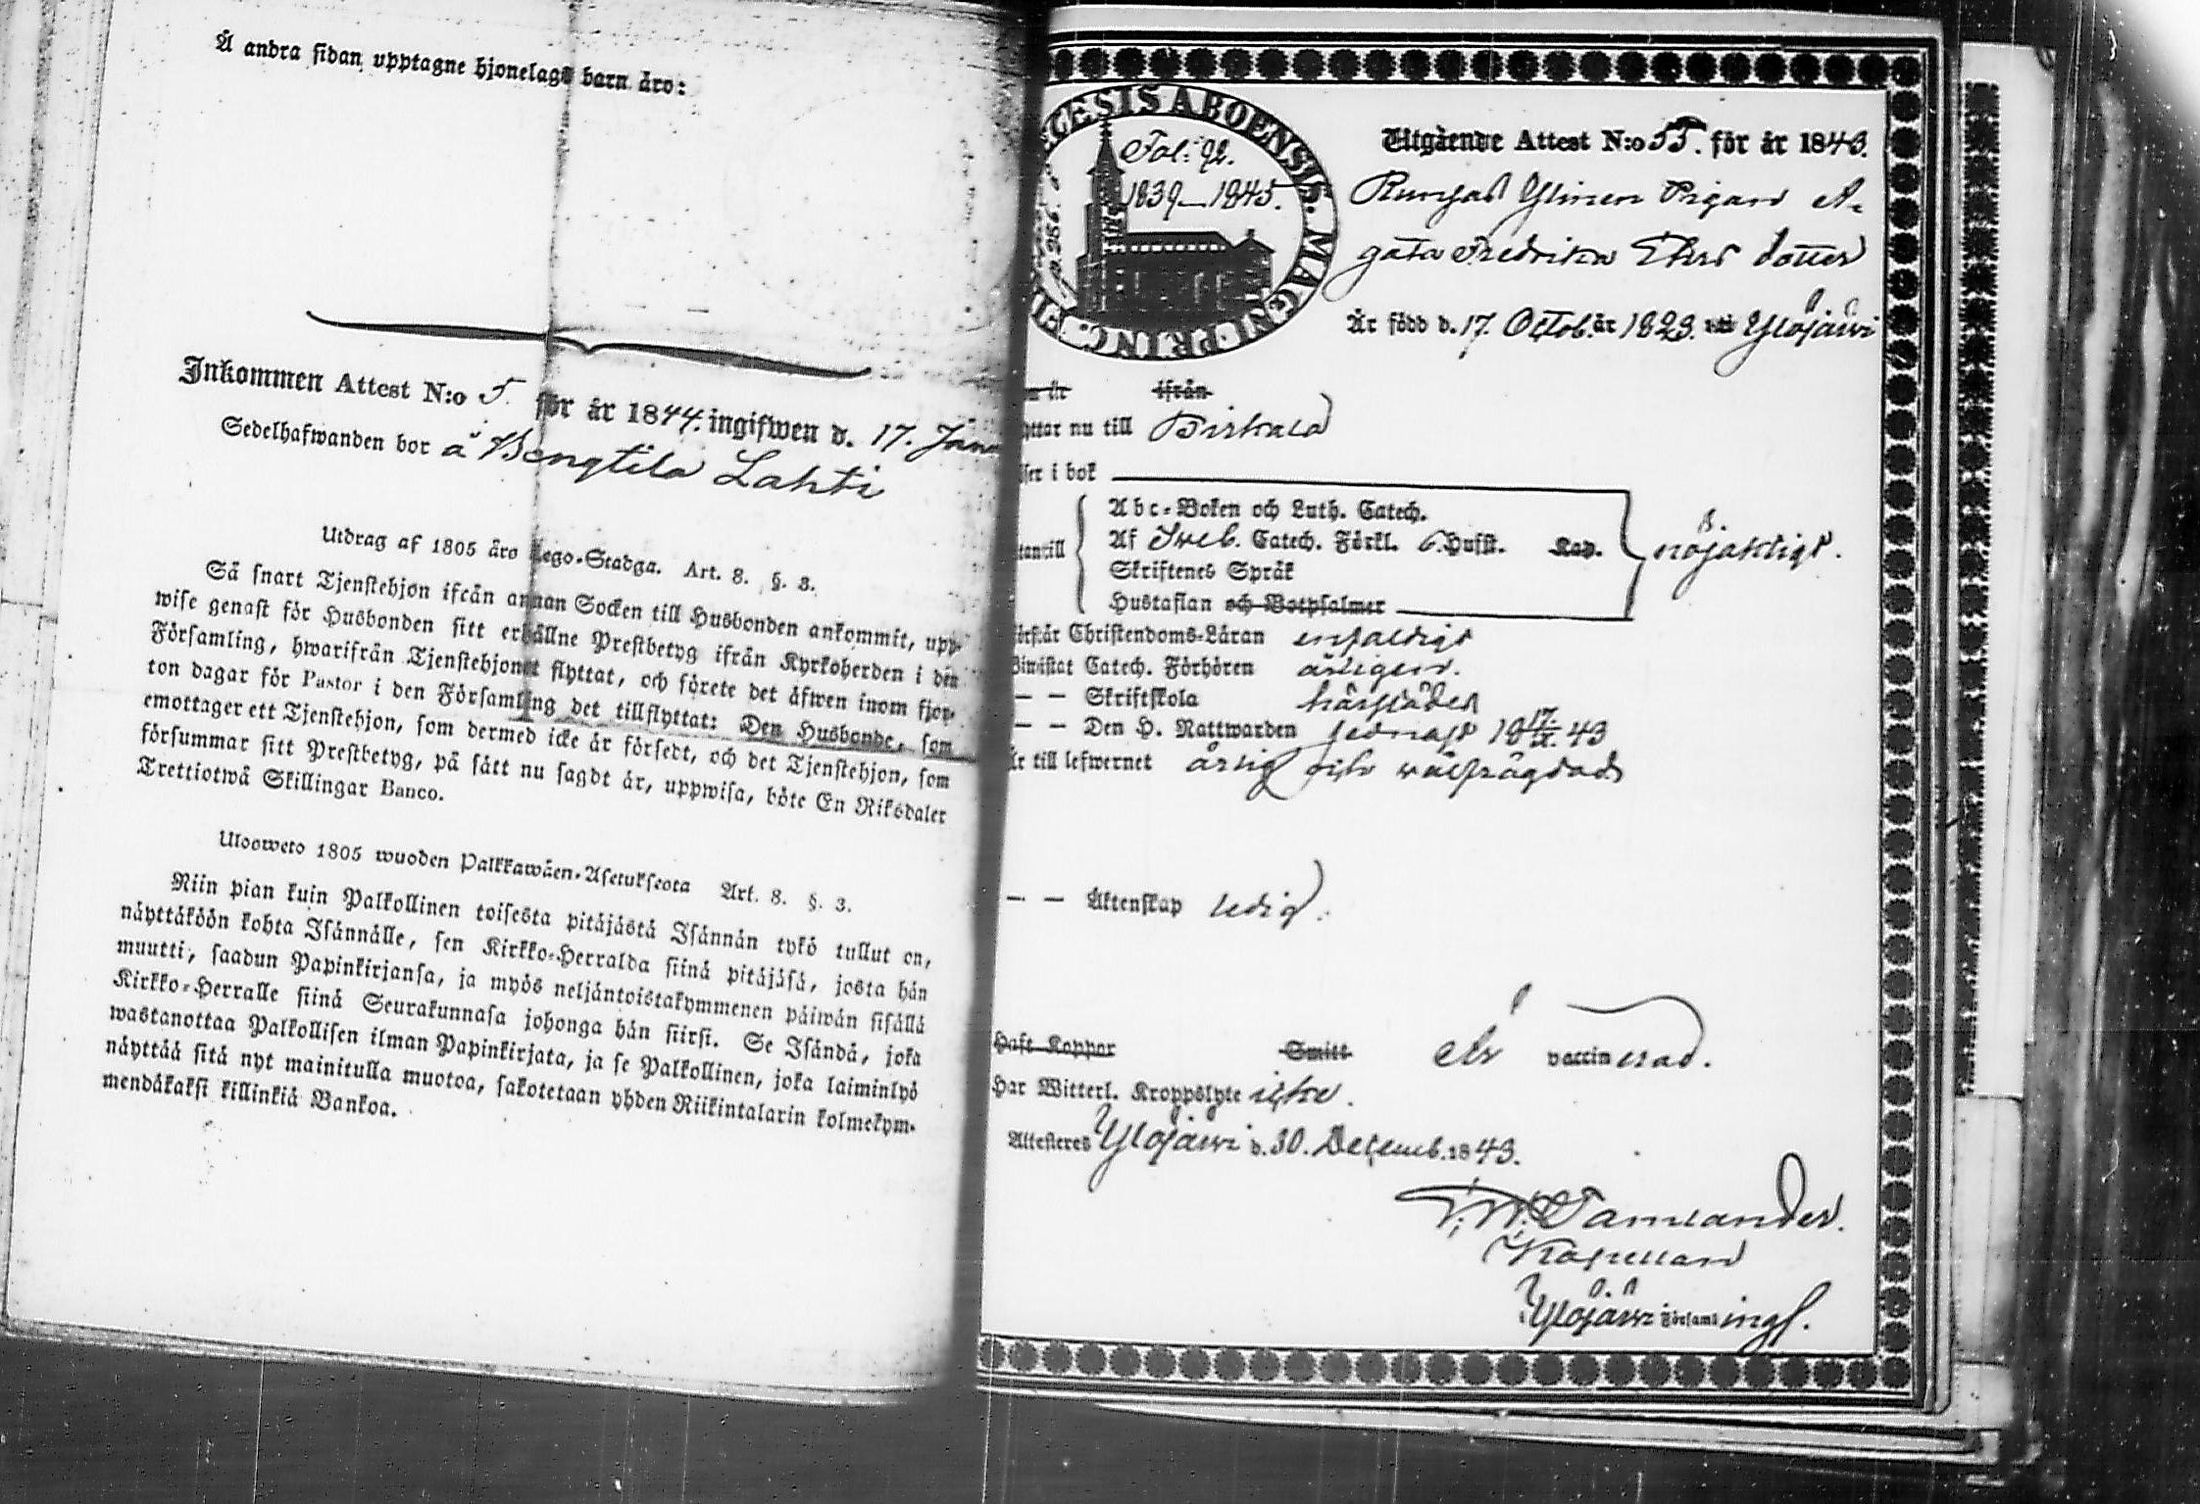 Å andra sidan upptagne hjonelags barn äro:
Inkommen Attest N:o 5. för år 1844. ingifwen d. 17. Janu
Sedelhafwanden bor å Bengtila Lahti
Utdrag af 1805 års Lego-Stadga. Art. 8. §. 3.
Så snart Tjenstehjon ifrån annan Socken till Husbonden ankommit, upp-
wise genast för Husbonden sitt erhållne Prestbetyg ifrån Kyrkoherden i den
Församling, hwarifrån Tjenstehjonet flyttat, och förete det äfwen inom fjor-
ton dagar för Pastor i den Församling det tillflyttat: Den Husbonde, som
emottager ett Tjenstehjon, som dermed icke är försedt, och det Tjenstehjon, som
försummar sitt Prestbetyg, på sätt nu sagdt är, uppwisa, böte En Riksdaler
Trettiotwå Skillingar Banco.
Ulosweto 1805 wuoden Palkkawäen-Asetuksesta Art. 8. §. 3.
Niin pian kuin Palkollinen toisesta pitäjästä Isännän tykö tullut on,
näyttäköön kohta Isännälle, sen Kirkko-Herralda siinä pitäjäsä, josta hän
muutti, saadun Papinkirjansa, ja myös neljäntoistakymmenen päiwän sisällä
Kirkko-Herralle siinä Seurakunnasa johonga hän siirsi. Se Isändä, joka
wastanottaa Palkollisen ilman Papinkirjata, ja se Palkollinen, joka laiminlyö
näyttää sitä nyt mainitulla muotoa, sakotetaan yhden Riikintalarin kolmekym-
mendäkaksi killinkiä Bankoa.
ECESIS ABOENSIS. MAGNI PRINC. FI
Fol: 92.
1839–1845.
Utgående Attest N:o 55. för år 1843.
Pigan A-
gata Fredrika dotter
Är född d. 17. Octob. år 1823. i Ylöjärvi
m år ifrån
yttar nu till Birkala
ser i bok
Abc-Boken och Luth. Catech.
tantill Af Sweb. Catech. Förkl. 6. Hufst. Kap. nöjaktigt.
Skriftenes Språk
Hustaflan och Botpsalmer
örstår Christendoms-Läran enfaldigt
Biwistat Catech. Förhören årligen.
— — Skriftskola härstädes
— — Den H. Nattwarden sednast 18 17/ 43
Är till lefwernet ärlig och wälfrägdad
— — Äktenskap ledig.
Haft Koppor Smitt Är vaccinerad.
Har Witterl. Kroppslyte icke.
Attesteres Ylöjärwi d. 30. Decemb. 1843.
Tamlander.
Kapellan
i Ylöjärwi Församlingf.